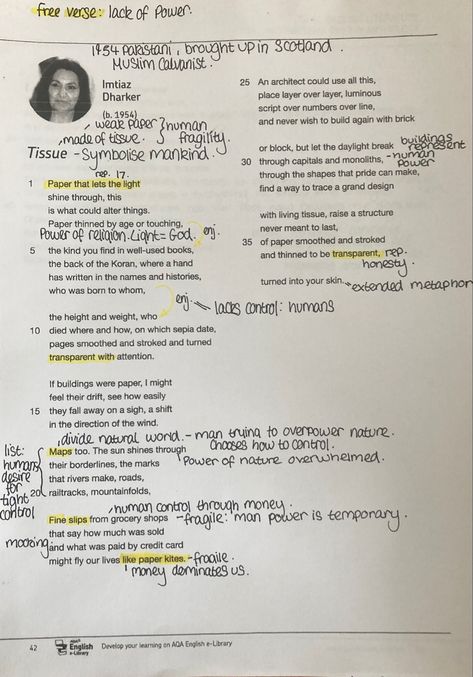 free verse: lack of Power.
1954 Pakistani, brought up in Scotland.
Muslim Calvanist.
Imtiaz
Dharker
(b. 1954)
weak paper } human
made of tissue. } fragility.
Tissue - Symbolise mankind.
rep. 17.
1 Paper that lets the light
shine through, this
is what could alter things.
Paper thinned by age or touching,
enj.
Power of religion. Light = God.
5 the kind you find in well-used books,
the back of the Koran, where a hand
has written in the names and histories,
who was born to whom,
enj. lacks control: humans
the height and weight, who
10 died where and how, on which sepia date,
pages smoothed and stroked and turned
transparent with attention.
If buildings were paper, I might
feel their drift, see how easily
15 they fall away on a sigh, a shift
in the direction of the wind.
divide natural world. - man trying to overpower nature.
chooses how to control.
Maps too. The sun shines through
Power of nature overwhelmed.
list:
humans
desire
for
tight
control
their borderlines, the marks
that rivers make, roads,
20 railtracks, mountainfolds,
human control through money.
Fine slips from grocery shops - fragile: man power is temporary.
that say how much was sold
mocking
and what was paid by credit card
might fly our lives like paper kites. - fragile.
money dominates us.
25 An architect could use all this,
place layer over layer, luminous
script over numbers over line,
and never wish to build again with brick
buildings
represent
or block, but let the daylight break
30 through capitals and monoliths, - human
power
through the shapes that pride can make,
find a way to trace a grand design
with living tissue, raise a structure
never meant to last,
35 of paper smoothed and stroked
and thinned to be transparent, rep.
honesty.
turned into your skin. extended metaphor
42
AQA
English
e-Library
Develop your learning on AQA English e-Library